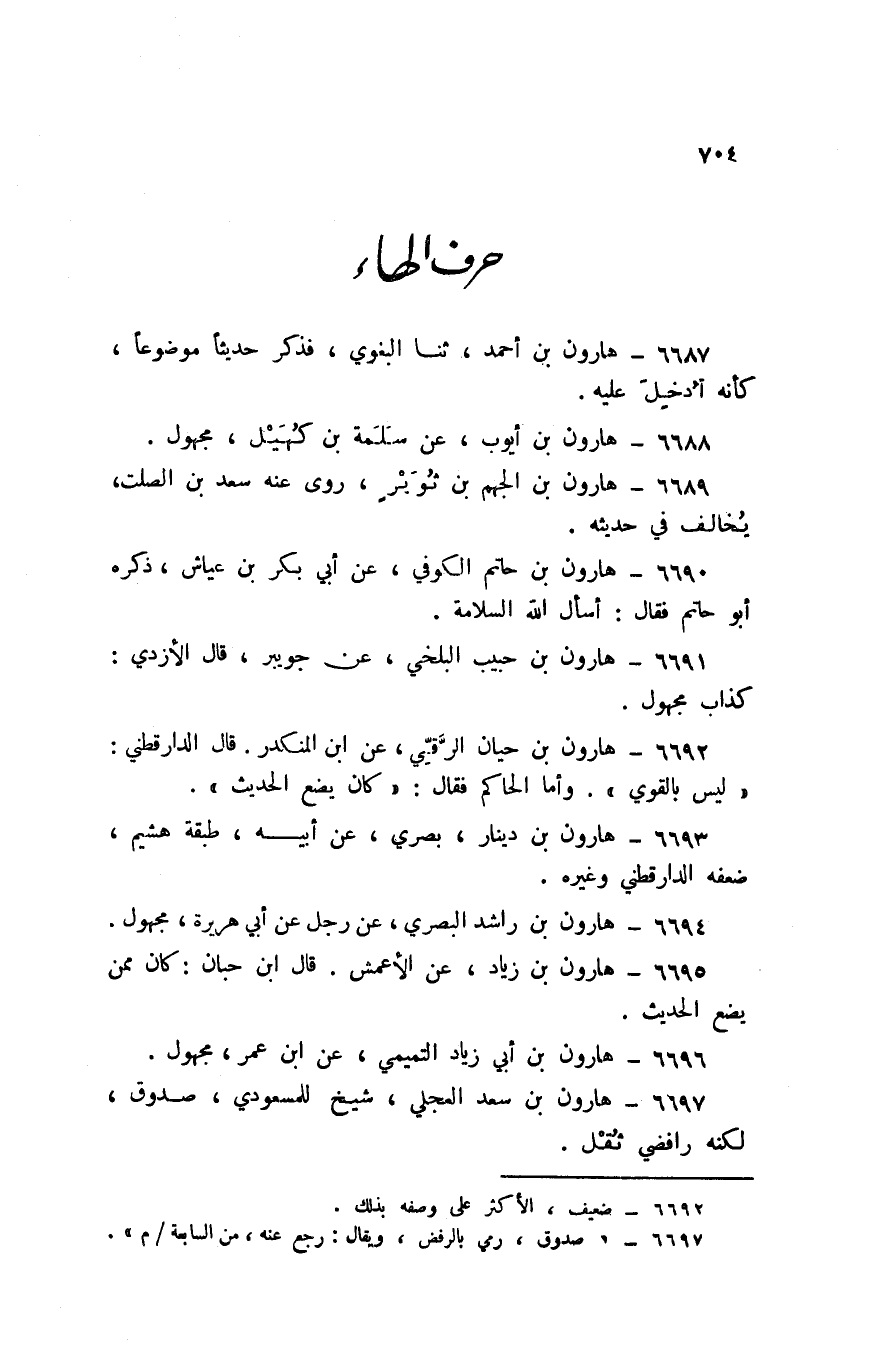 ٧٠٤
حرف الهاء
٦٦٨٧ ـ هارون بن أحمد ، ثنا البغوي ، فذكر حديثاً موضوعاً ،
كأنه أُدخِلَ عليه .
٦٦٨٨ ـ هارون بن أيوب ، عن سَلَمة بن كُهَيْل ، مجهول .
٦٦٨٩ ـ هارون بن الجهم بن ثُوَيْرٍ ، روى عنه سعد بن الصلت،
يُخالف في حديثه .
٦٦٩٠ ـ هارون بن حاتم الكوفي ، عن أبي بكر بن عياش ، ذكره
أبو حاتم فقال : أسأل الله السلامة .
٦٦٩١ ـ هارون بن حبيب البلخي ، عن جويبر ، قال الأزدي :
كذاب مجهول .
٦٦٩٢ ـ هارون بن حيان الرَّقِّي ، عن ابن المنكدر . قال الدارقطني :
« ليس بالقوي » . وأما الحاكم فقال : « كان يضع الحديث » .
٦٦٩٣ ـ هارون بن دينار ، بصري ، عن أبيه ، طبقة هشيم ،
ضعفه الدارقطني وغيره .
٦٦٩٤ ـ هارون بن راشد البصري ، عن رجل عن أبي هريرة ، مجهول .
٦٦٩٥ ـ هارون بن زياد ، عن الأعمش . قال ابن حبان : كان ممن
يضع الحديث .
٦٦٩٦ ـ هارون بن أبي زياد التميمي ، عن ابن عمر ، مجهول .
٦٦٩٧ ـ هارون بن سعد العجلي ، شيخ للمسعودي ، صدوق ،
لكنه رافضي ثُقْل .
٦٦٩٢ ـ ضعيف ، الأكثر على وصفه بذلك .
٦٦٩٧ ـ « صدوق ، رمي بالرفض ، ويقال : رجع عنه ، من السابعة / م » .